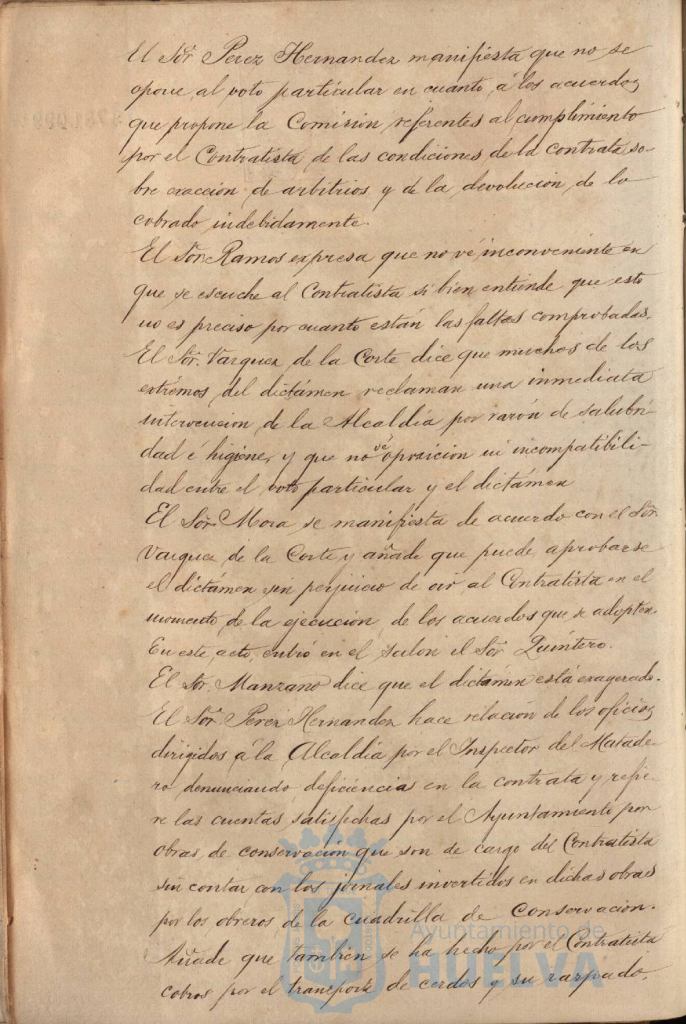 El Sor. Perez Hernandez manifiesta que no se
opone al voto particular en cuanto á los acuerdos
que propone la Comision referentes al cumplimiento
por el Contratista de las condiciones de la contrata so-
bre exacción de arbitrios y de la devolución de lo
cobrado indebidamente.
El Sor. Ramos expresa que no vé inconveniente en
que se escuche al Contratista si bien entiende que esto
no es preciso por cuanto están las faltas comprobadas.
El Sor. Vazquez de la Corte dice que muchos de los
extremos del dictámen reclaman una inmediata
intervencion de la Alcaldía por razón de salubri-
dad é higiene, y que no vé oposicion ni incompatibili-
dad entre el voto particular y el dictámen
El Sor. Mora se manifiesta de acuerdo con el Sor.
Vazquez de la Corte y añade que puede aprobarse
el dictámen sin perjuicio de oir al Contratista en el
momento de la ejecución de los acuerdos que se adopten.
En este acto entró en el salon el Sor. Quintero.
El Sor. Manzano dice que el dictámen está exagerado.
El Sor. Perez Hernandez hace relación de los oficios
dirigidos á la Alcaldía por el Inspector del Matade-
ro denunciando deficiencias en la contrata y refie-
re las cuentas satisfechas por el Ayuntamiento por
obras de conservación que son de cargo del Contratista
sin contar con los jornales invertidos en dichas obras
por los obreros de la cuadrilla de Conservacion.
Añade que tambien se ha hecho por el Contratista
cobros por el transporte de cerdos y su raspado.
Ayuntamiento de
HUELVA